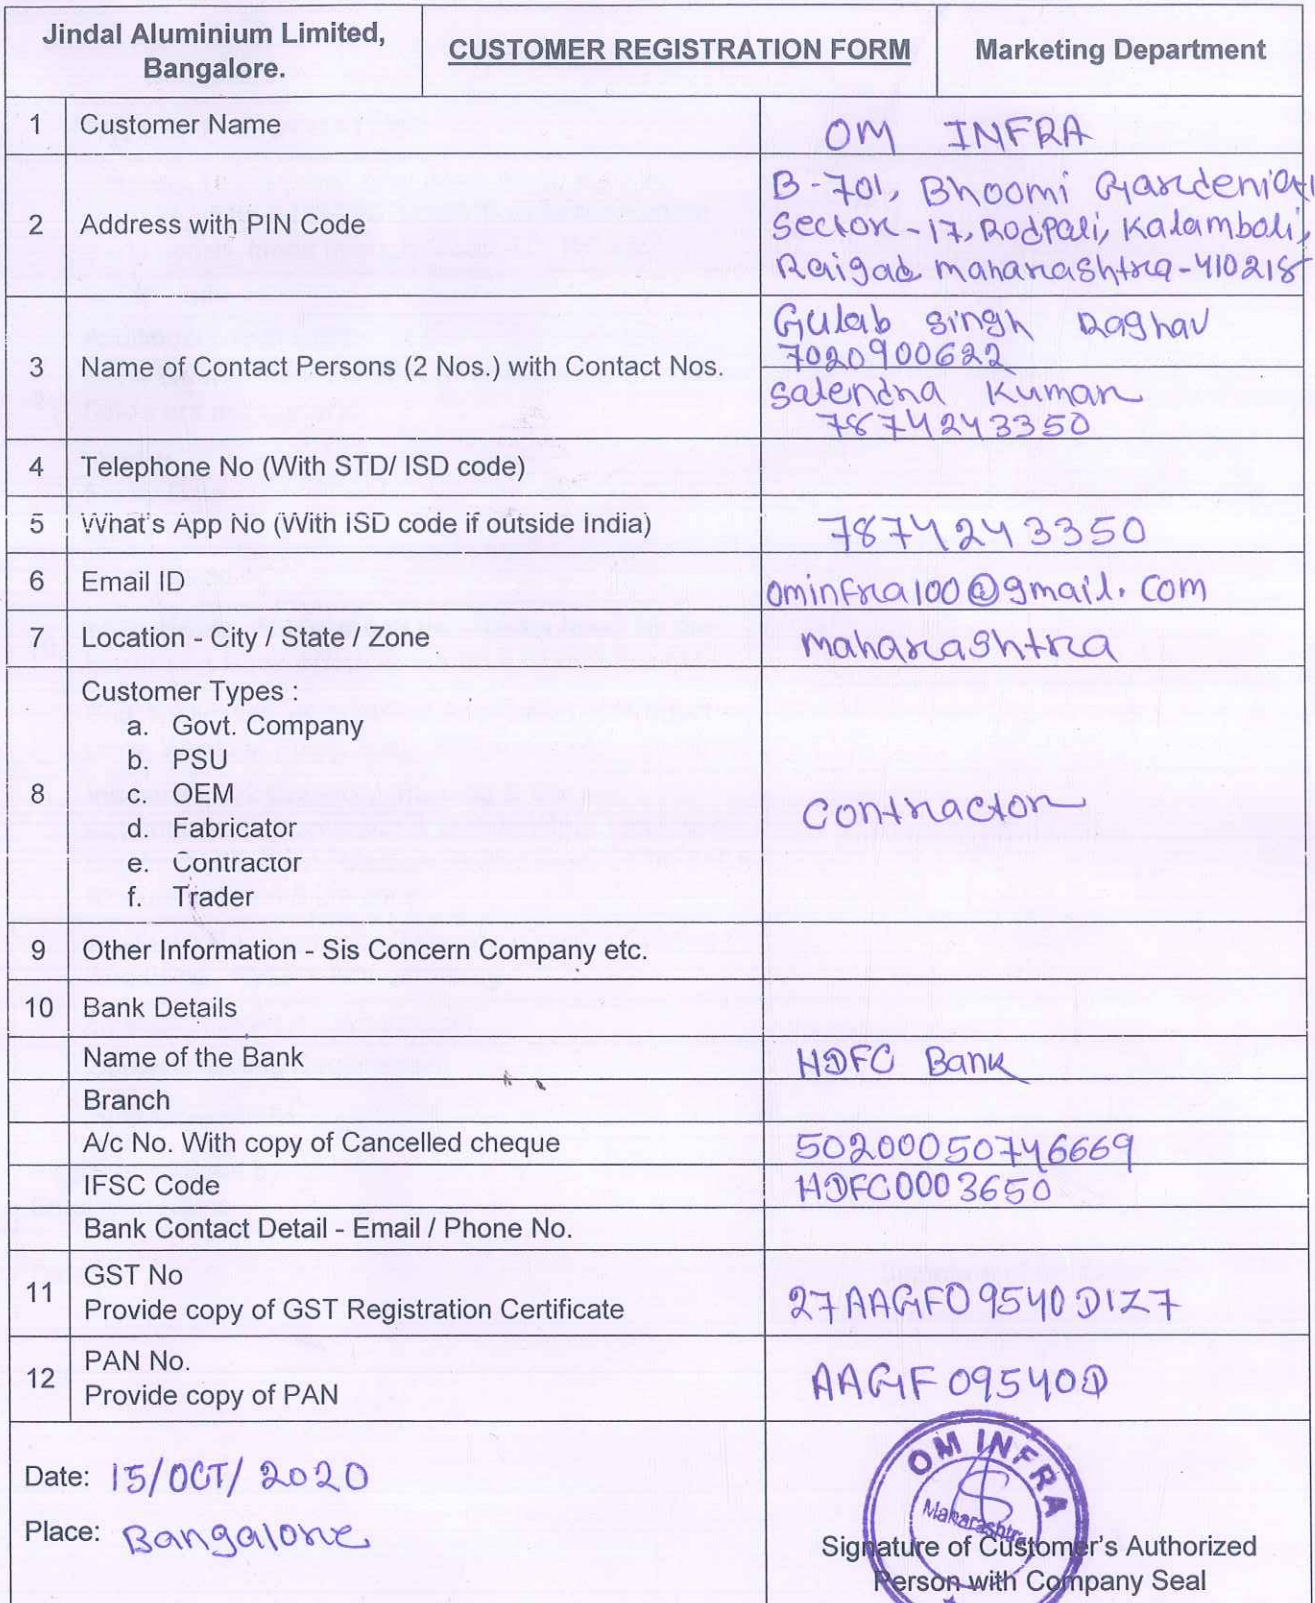 Jindal Aluminium Limited,
Bangalore.
CUSTOMER REGISTRATION FORM
Marketing Department
1 Customer Name OM INFRA
2 Address with PIN Code
B-701, Bhoomi Gardenia
Sector-17, Rodpali, Kalamboli,
Raigad maharashtra-410218
3 Name of Contact Persons (2 Nos.) with Contact Nos.
Gulab Singh Raghav
7020900622
Salendra Kumar
7874243350
4 Telephone No (With STD/ ISD code)
5 What's App No (With ISD code if outside India) 7874243350
6 Email ID ominfra100@gmail.com
7 Location - City / State / Zone maharashtra
8 Customer Types :
a. Govt. Company
b. PSU
c. OEM
d. Fabricator
e. Contractor
f. Trader
Contractor
9 Other Information - Sis Concern Company etc.
10 Bank Details
Name of the Bank HDFC Bank
Branch
A/c No. With copy of Cancelled cheque 50200050746669
IFSC Code HDFC0003650
Bank Contact Detail - Email / Phone No.
11 GST No
Provide copy of GST Registration Certificate
27AAGFO9540D1Z7
12 PAN No.
Provide copy of PAN
AAGFO9540D
Date: 15/OCT/2020
Place: Bangalore
OM INFRA
Maharashtra
Signature of Customer's Authorized
Person with Company Seal